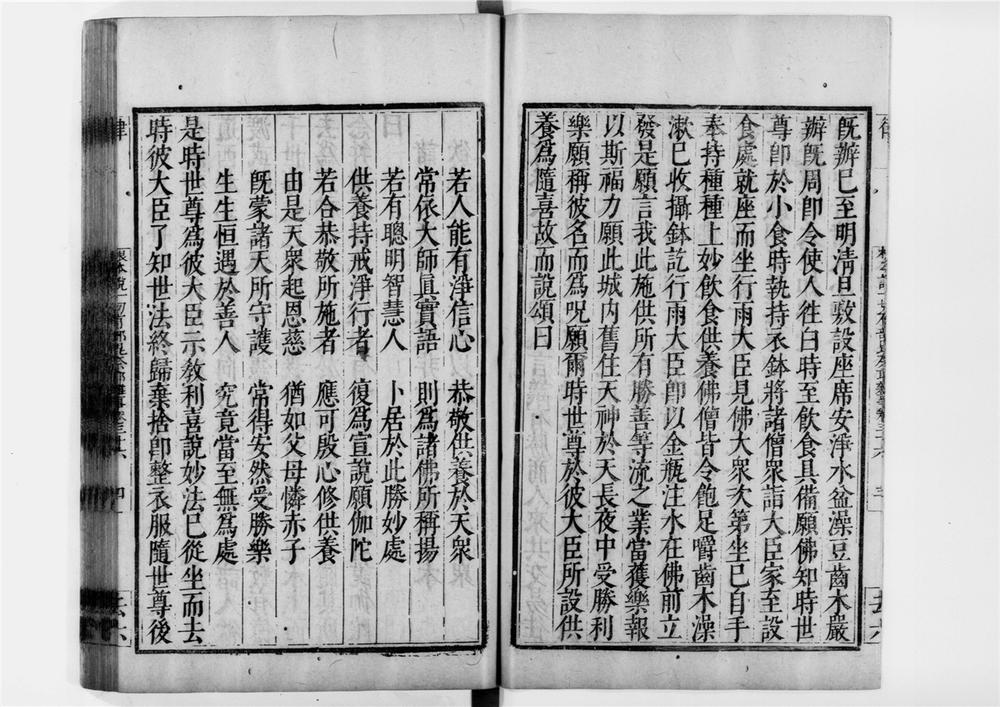 既辦已至明清旦敷設座席安淨水盆澡豆齒木嚴
辦既周即令使人往白時至飲食具備願佛知時世
尊即於小食時執持衣鉢將諸僧眾詣大臣家至設
食處就座而坐行雨大臣見佛大眾次第坐已自手
奉持種種上妙飲食供養佛僧皆令飽足嚼齒木澡
漱已收攝鉢訖行雨大臣即以金瓶注水在佛前立
發是願言我此施供所有勝善等流之業當獲樂報
以斯福力願此城內舊住天神於天長夜中受勝利
樂願稱彼名而為呪願爾時世尊於彼大臣所設供
養為隨喜故而說頌曰
若人能有淨信心　恭敬供養於天眾
常依大師真實語　則為諸佛所稱揚
若有聰明智慧人　卜居於此勝妙處
供養持戒淨行者　復為宣說願伽陀
若合恭敬所施者　應可殷心修供養
由是天眾起恩慈　猶如父母憐亦子
既蒙諸天所守護　常得安然受勝樂
生生恒遇於善人　究竟當至無為處
是時世尊為彼大臣示教利喜說妙法已從坐而去
時彼大臣了知世法終歸棄捨即整衣服隨世尊後
律
四
去六